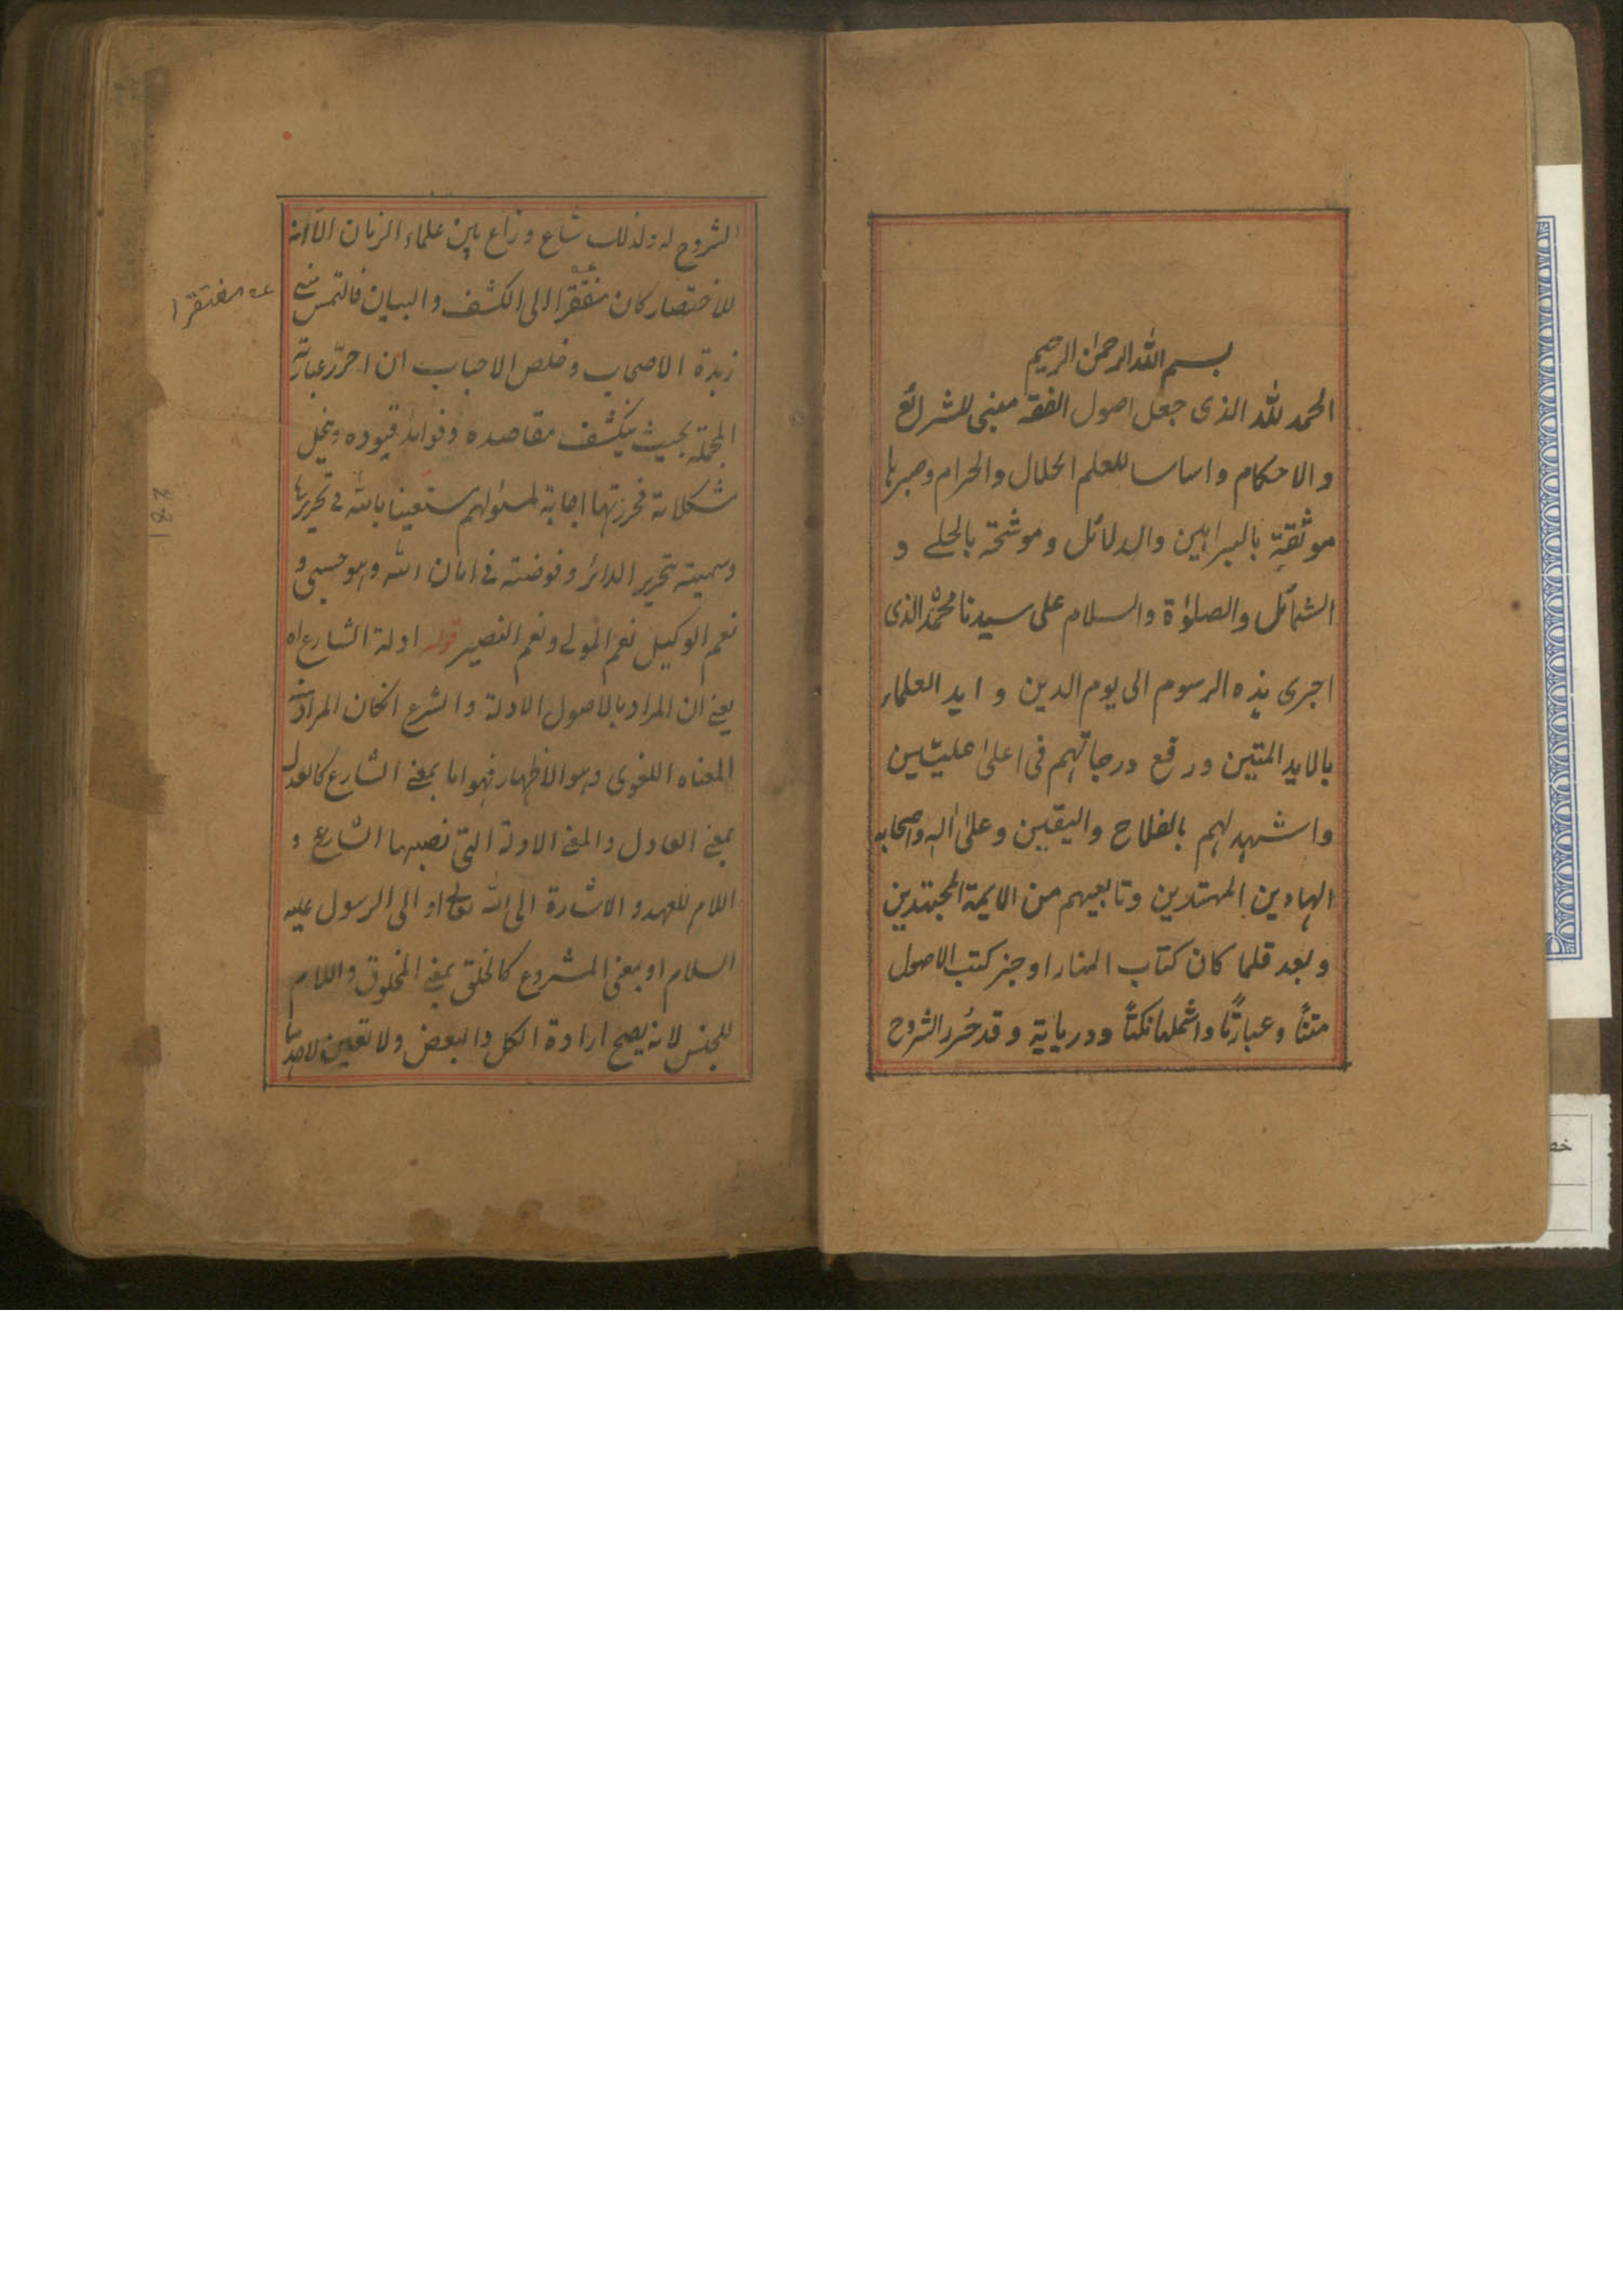 بسم الله الرحمن الرحيم
الحمد لله الذى جعل اصول الفقه مبنى للشرائع
والاحكام واساسا للعلم الحلال والحرام وصيرها
موثقة بالبراهين والدلائل وموشحة بالحلے و
الشمائل والصلوٰة والسلام على سيدنا محمد الذى
اجرى هذه الرسوم الى يوم الدين و ايد العلماء
بالايد المتين ورفع درجاتهم فى اعلىٰ عليّين
واشهد لهم بالفلاح واليقين وعلىٰ اله واصحابه
الهادين المهتدين وتابعيهم من الايمة المجتهدين
وبعد فلما كان كتاب المنار اوجز كتب الاصول
متنًا وعبارتًا واشملها نكتًا ودرياية وقد حُرر الشروح
الشروح له ولذلك شاع وذاع بين علماء الزمان الا انه
للاختصار كان منفقرا الى الكشف والبيان فالتمس منے
مفتقرا
زبدة الاصحاب وخلص الاحباب ان احرّر عبارته
المجملة بحيث ينكشف مقاصده وفوايد قيوده وينحل
مشكلاته فحررتها اجابة لمسئولهم مستعينا بالله فے تحريرها
وسميته بتحرير الدائر وفوضته فے امان الله وهو حسبى و
نعم الوكيل نعم المولے ونعم النصير قوله ادلة الشارع اه
يعنے ان المراد بالاصول الادلة والشرع انكان المراد منه
المعناه اللغوى وهو الاظهار فهو اما بمعنے الشارع كالعدل
بمعنے العادل والمعنے الادلة التى نصبها الشارع و
اللام للعهد والاشارة الى الله تعالے او الى الرسول عليه
السلام او بمعنى المشروع كالخلق بمعنے المخلوق واللام
للجنس لانه يصح ارادة الكل والبعض ولا تعين لاحدها
281
خص